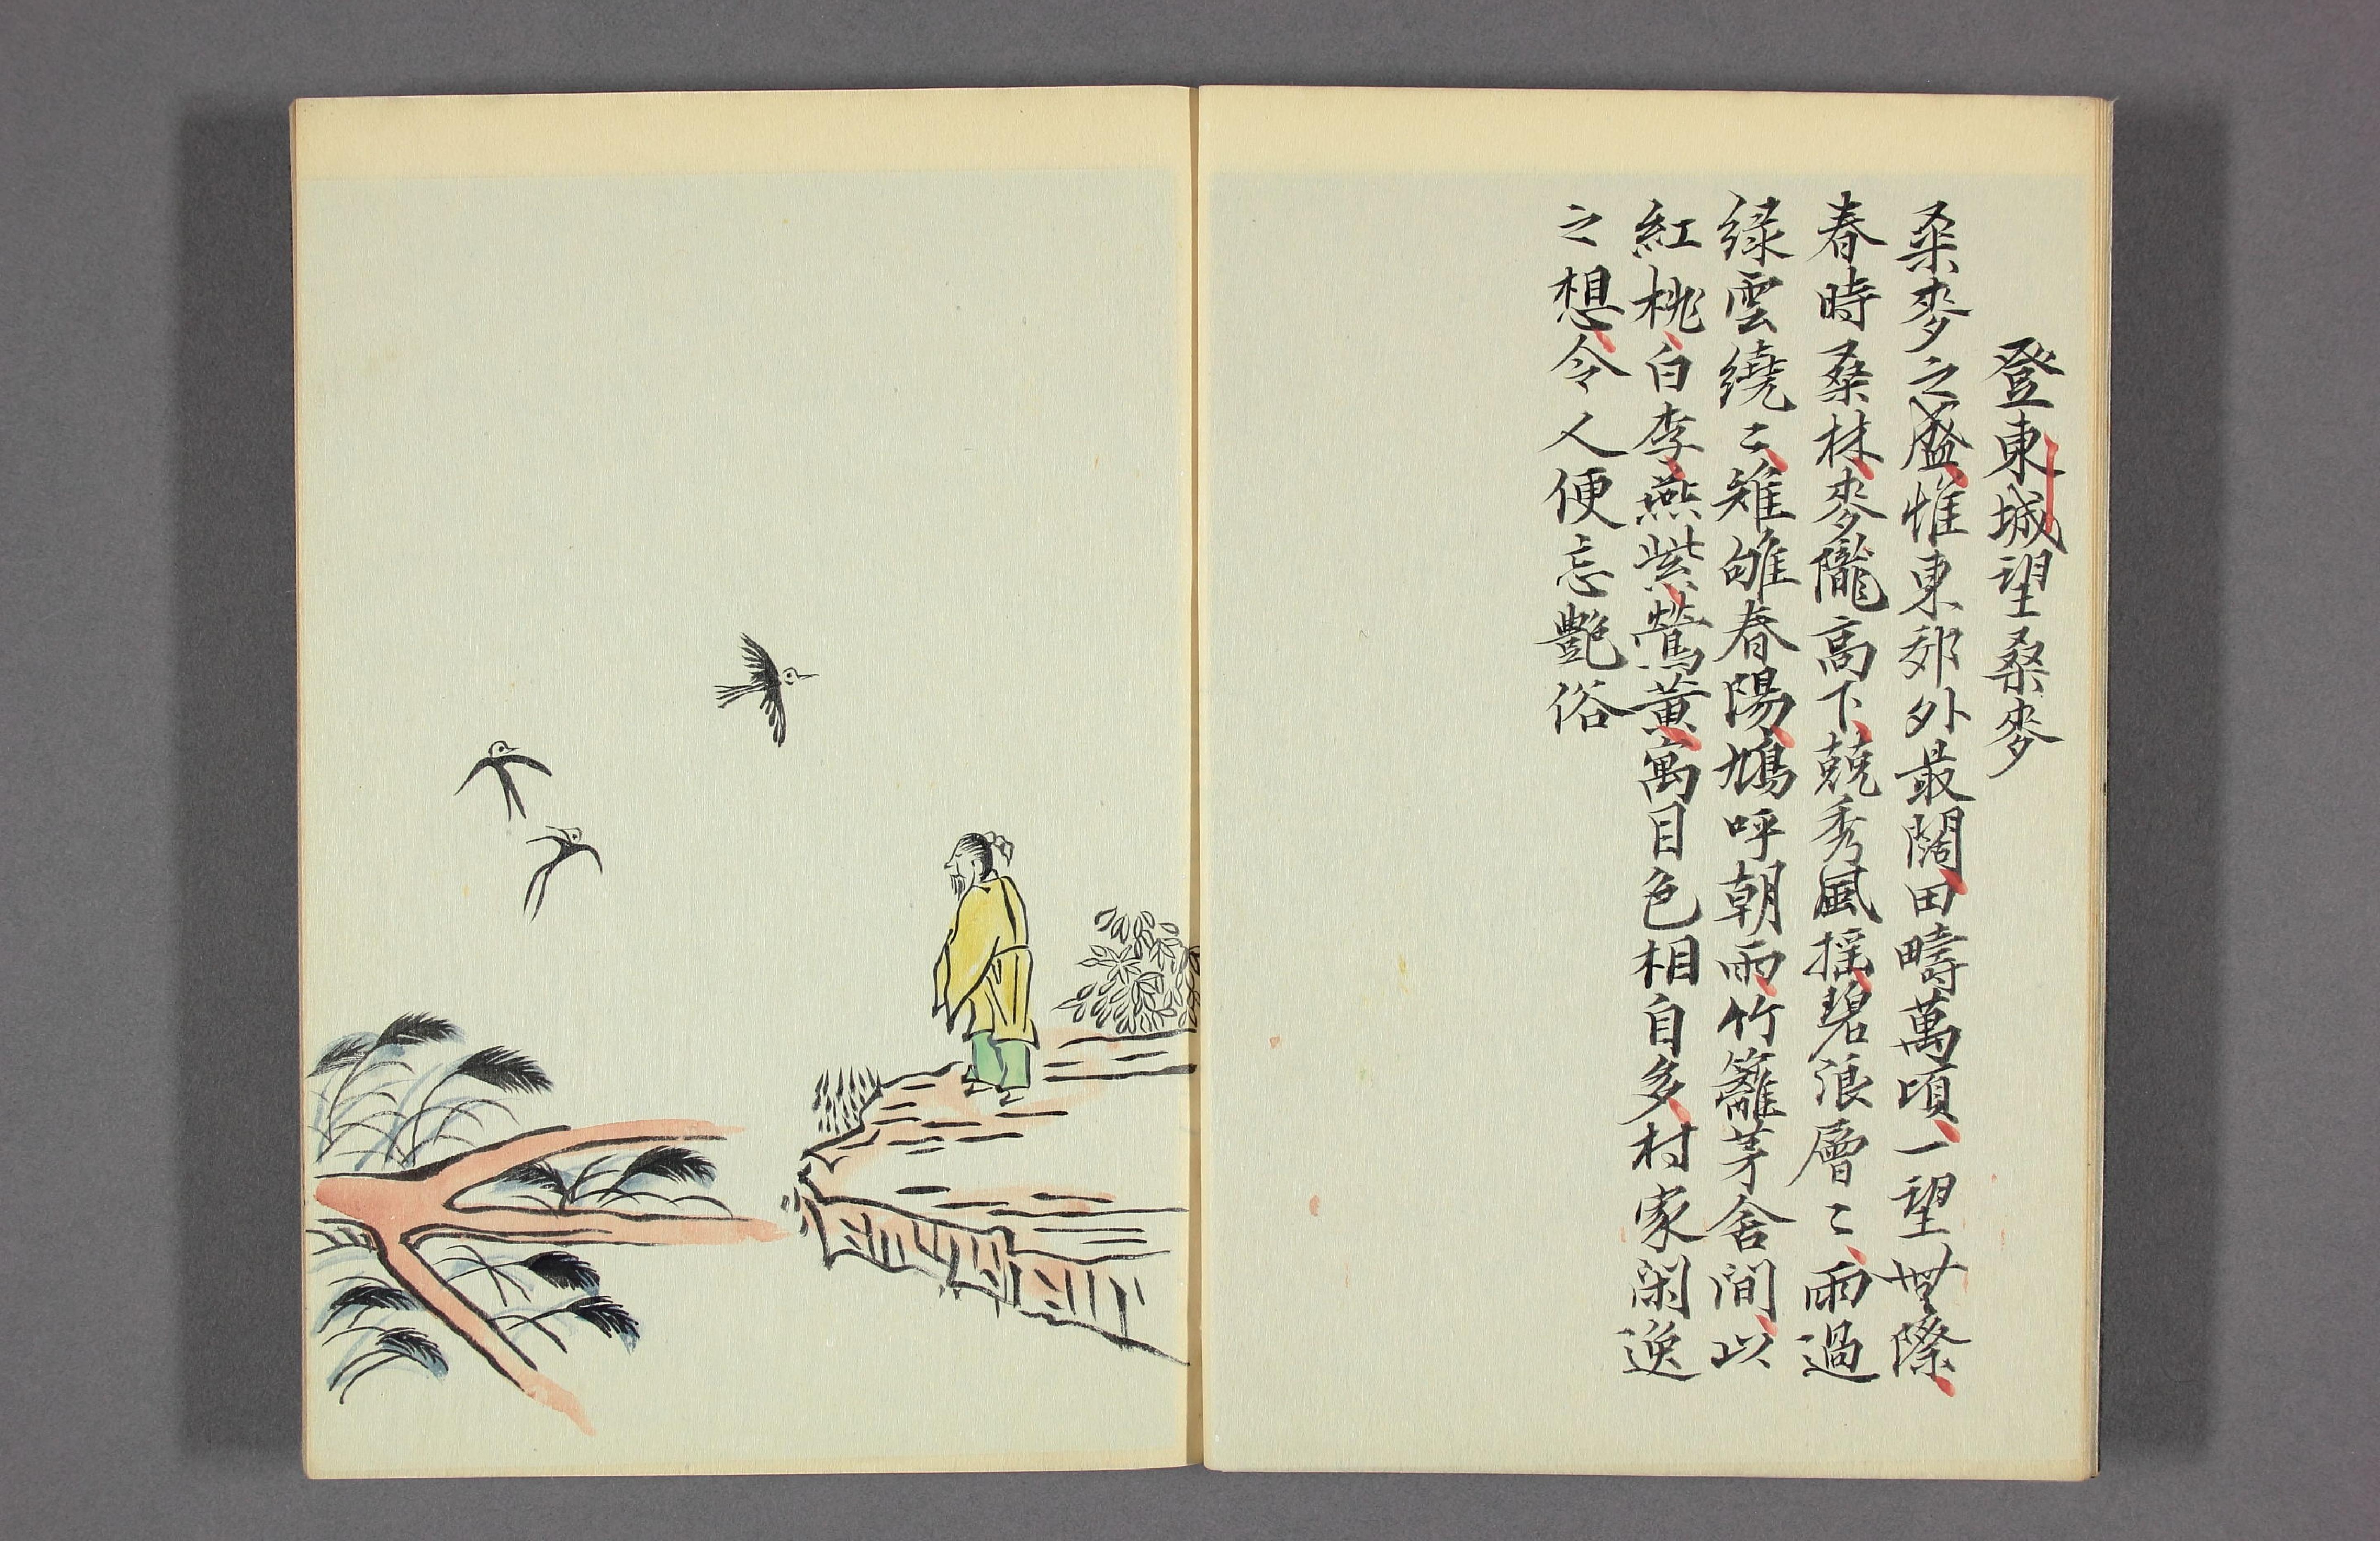 登東城望桑麥
桒麥之盛惟東郊外最闊田疇萬頃一望無際
春時桑林麥隴高下兢秀風揺碧浪層〻雨過
緑雲繞〻雉雊春陽鳩呼朝雨竹籬茅舍間以
紅桃白李燕紫鶯黃寓目色相自多村家閑逸
之想令人便忘艶俗